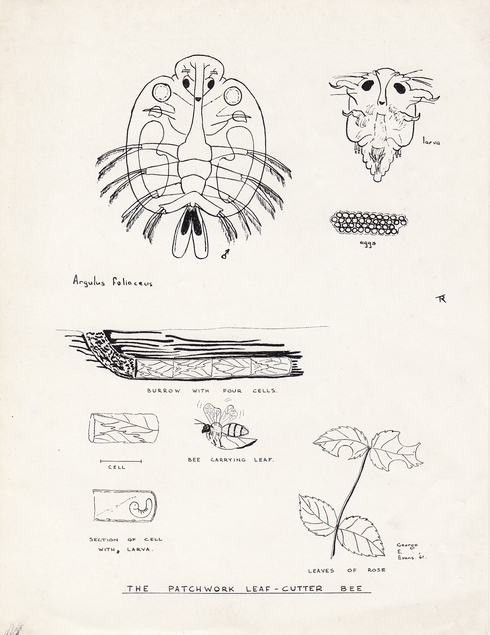 larva
eggs
♂
Argulus foliaceus
TR
BURROW WITH FOUR CELLS.
CELL
BEE CARRYING LEAF.
SECTION OF CELL
WITH LARVA.
George
E.
Evans
LEAVES OF ROSE
THE PATCHWORK LEAF-CUTTER BEE